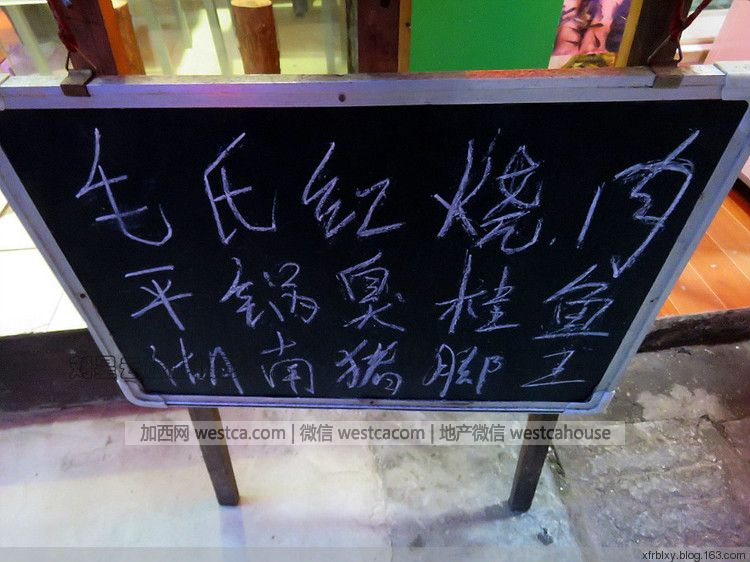 毛氏红烧肉
平锅臭桂鱼
湖南猪脚王
加西网 westca.com | 微信 westcacom | 地产微信 westcahouse
xfrblxy.blog.163.com